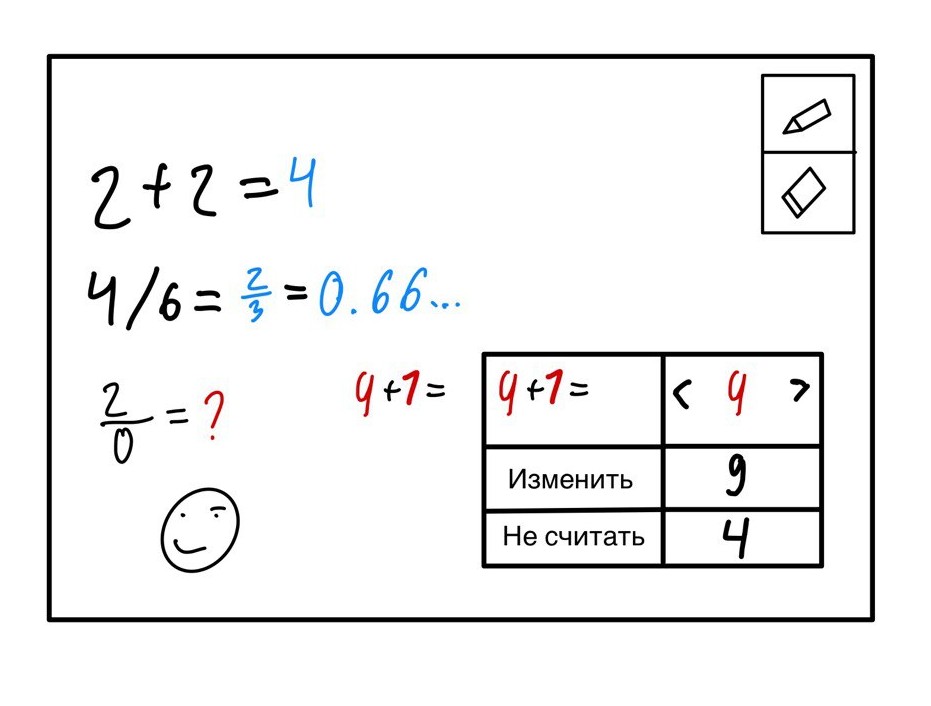 2+2=4
4/6=2/3=0.66...
2/0=?
9+1=
9+1= < 9 >
Изменить 9
Не считать 4